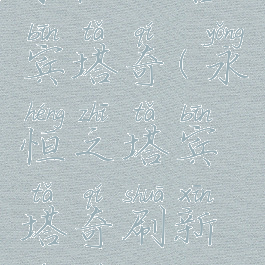 bīn tǎ qí yǒng
宾塔奇(永
héng zhī tǎ bīn
恒之塔宾
tǎ qí shuā xīn
塔奇刷新